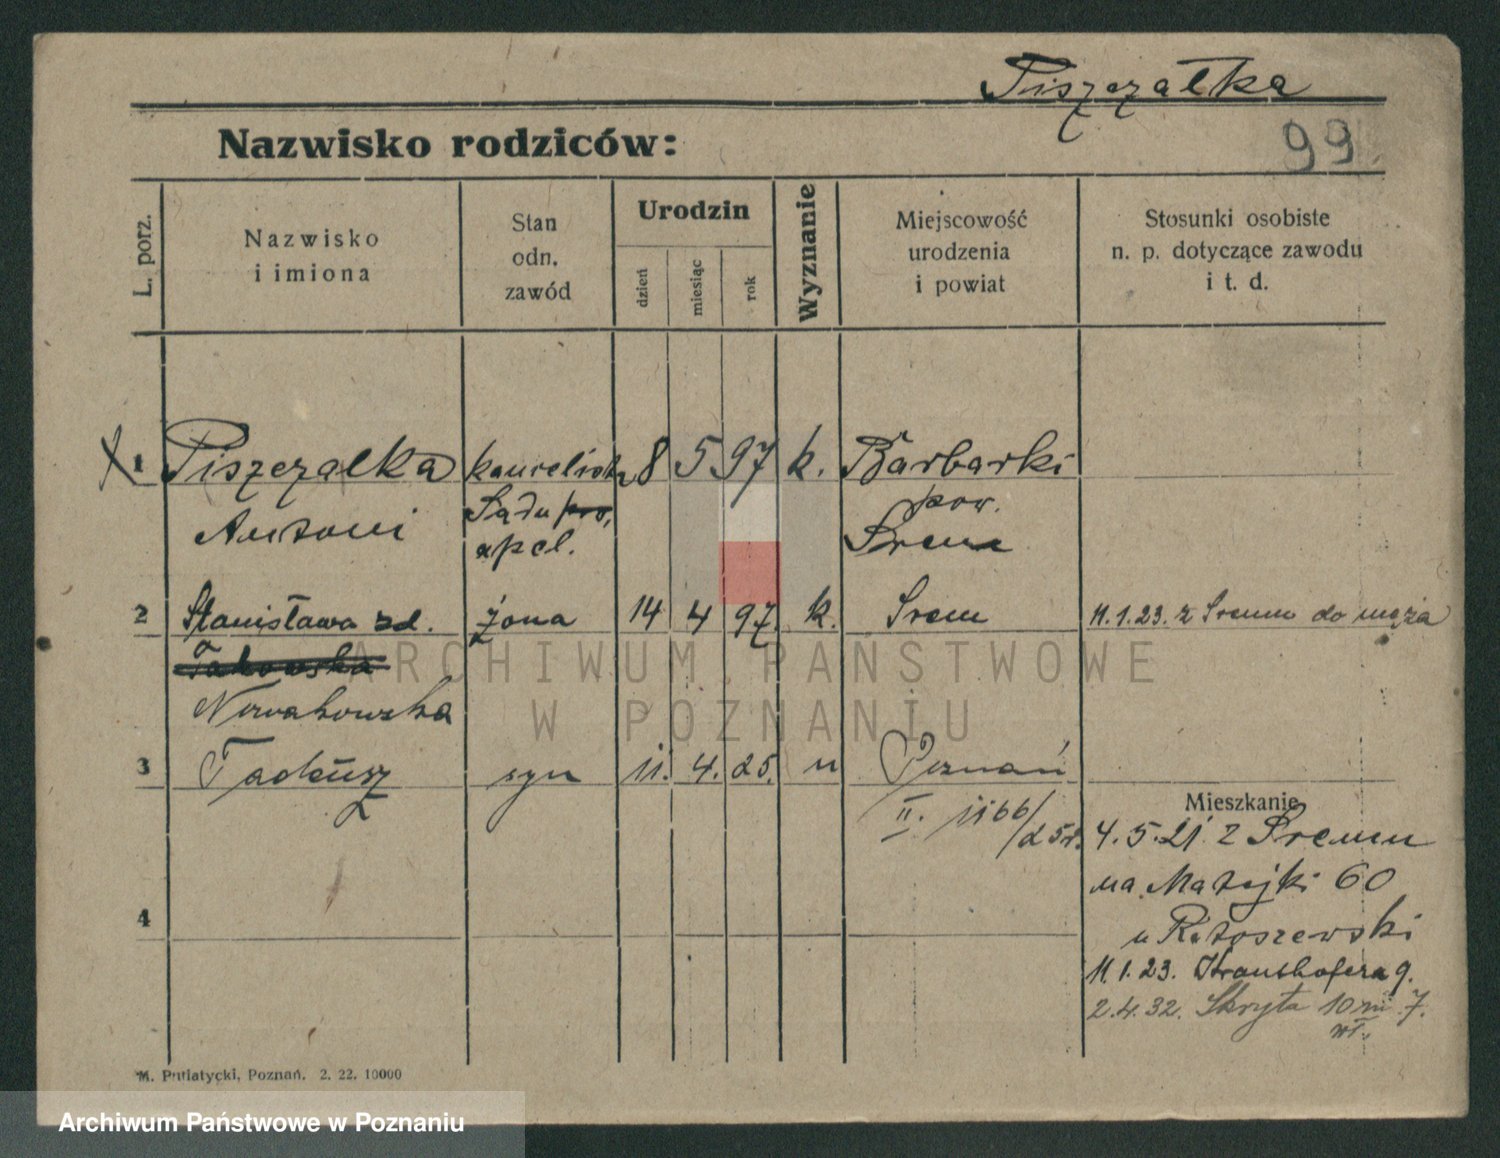 Piszczałka
Nazwisko rodziców:
99.
L. porz.
Nazwisko
i imiona
Stan
odn.
zawód
Urodzin
dzień
miesiąc
rok
Wyznanie
Miejscowość
urodzenia
i powiat
Stosunki osobiste
n. p. dotyczące zawodu
i t. d.
1 Piszczałka kancelista 8 5 97 k. Barbarki
Antoni Sądu pow.
apel. Śrem
2 Stanisława zd. żona 14 4 97 k. Śrem 11.1.23. z Śremu do męża
Nowakowska
3 Tadeusz syn 11. 4. 25. " Poznań
II. 1166/25r.
Mieszkanie
4.5.21. z Śremu
na Matejki 60
u Ratoszewski
4
11.1.23. 9.
2.4.32. Skryta 10 m 7.
wł.
M. Putiatycki, Poznań. 2. 22. 10000
ARCHIWUM PAŃSTWOWE
W POZNANIU
Archiwum Państwowe w Poznaniu